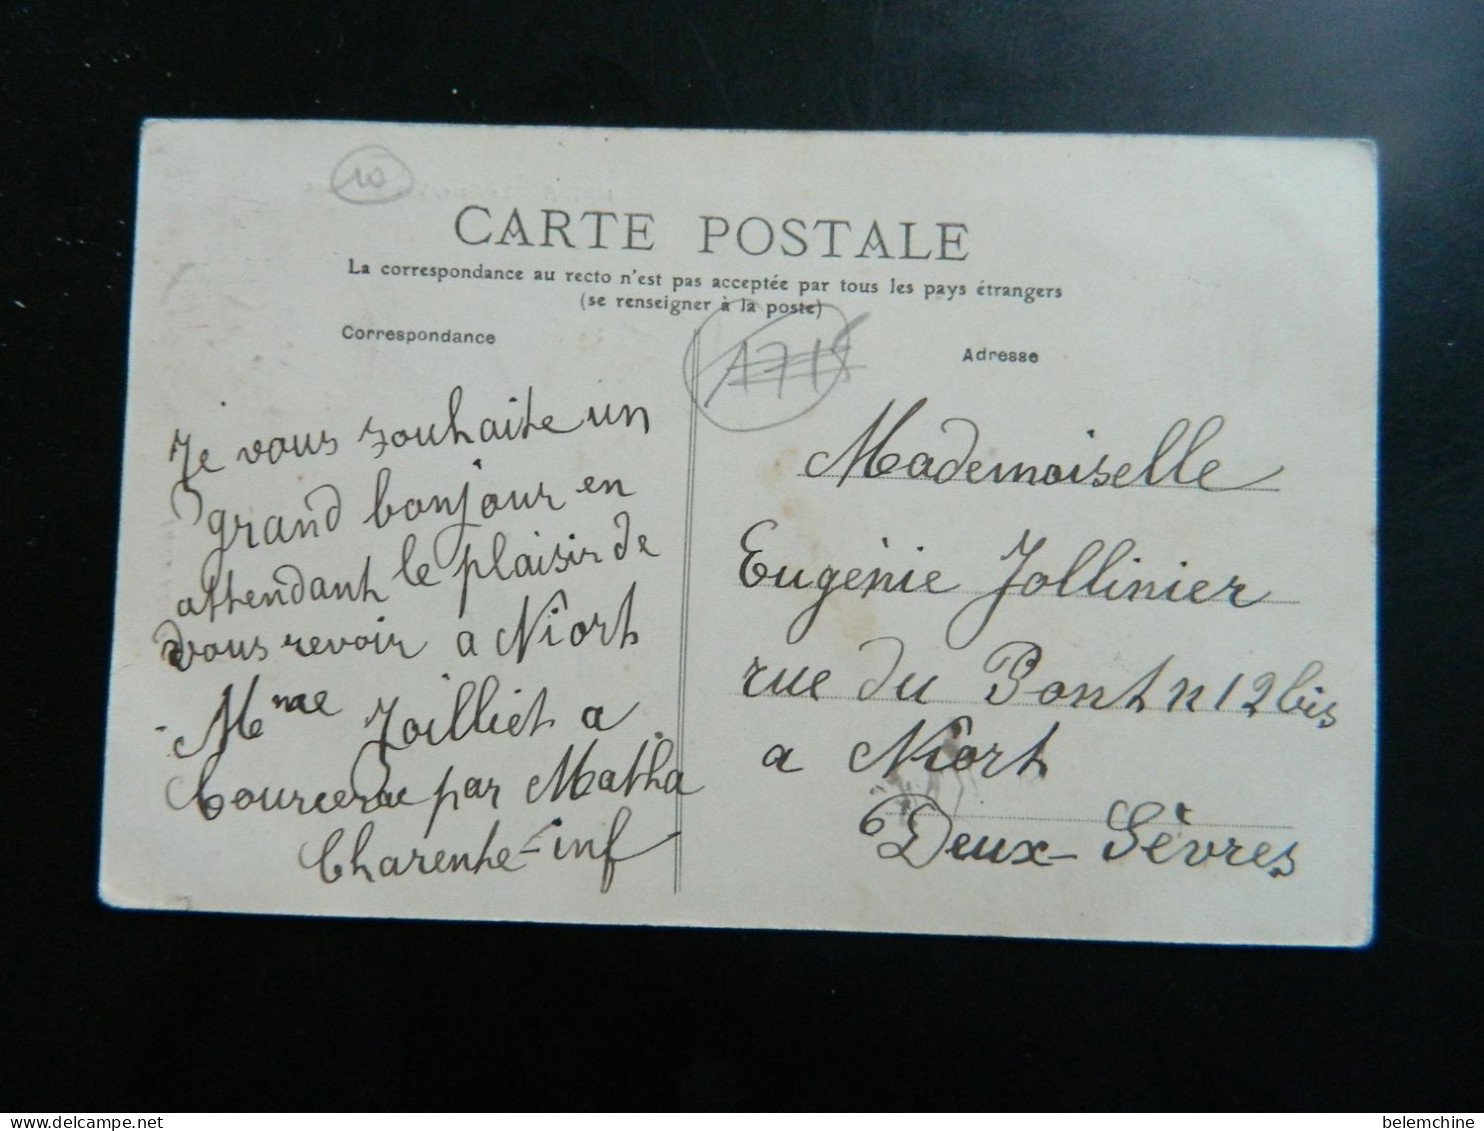 10
CARTE POSTALE
La correspondance au recto n'est pas acceptée par tous les pays étrangers
(se renseigner à la poste)
Correspondance
Adresse
Je vous souhaite un
grand bonjour en
attendant le plaisir de
vous revoir a Niort
Mme Joilliet a
Courcerac par Matha
Charente-inf
Mademoiselle
Eugénie Jollinier
rue du Pont n 12 bis
a Niort
Deux-Sèvres
belemchine